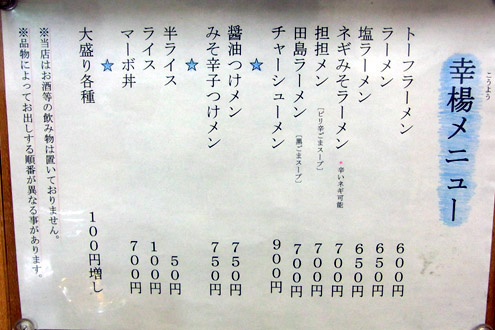 こうよう
幸楊メニュー
トーフラーメン 600円
ラーメン 650円
塩ラーメン 650円
ネギみそラーメン *辛いネギ可能 700円
担担メン 〔ピリ辛ごまスープ〕 700円
田島ラーメン 〔黒ごまスープ〕 700円
チャーシューメン 900円
★
醤油つけメン 750円
みそ辛子つけメン 750円
★
半ライス 50円
ライス 100円
マーボ丼 700円
★
大盛り各種 100円増し
※当店はお酒等の飲み物は置いておりません。
※品物によってお出しする順番が異なる事があります。